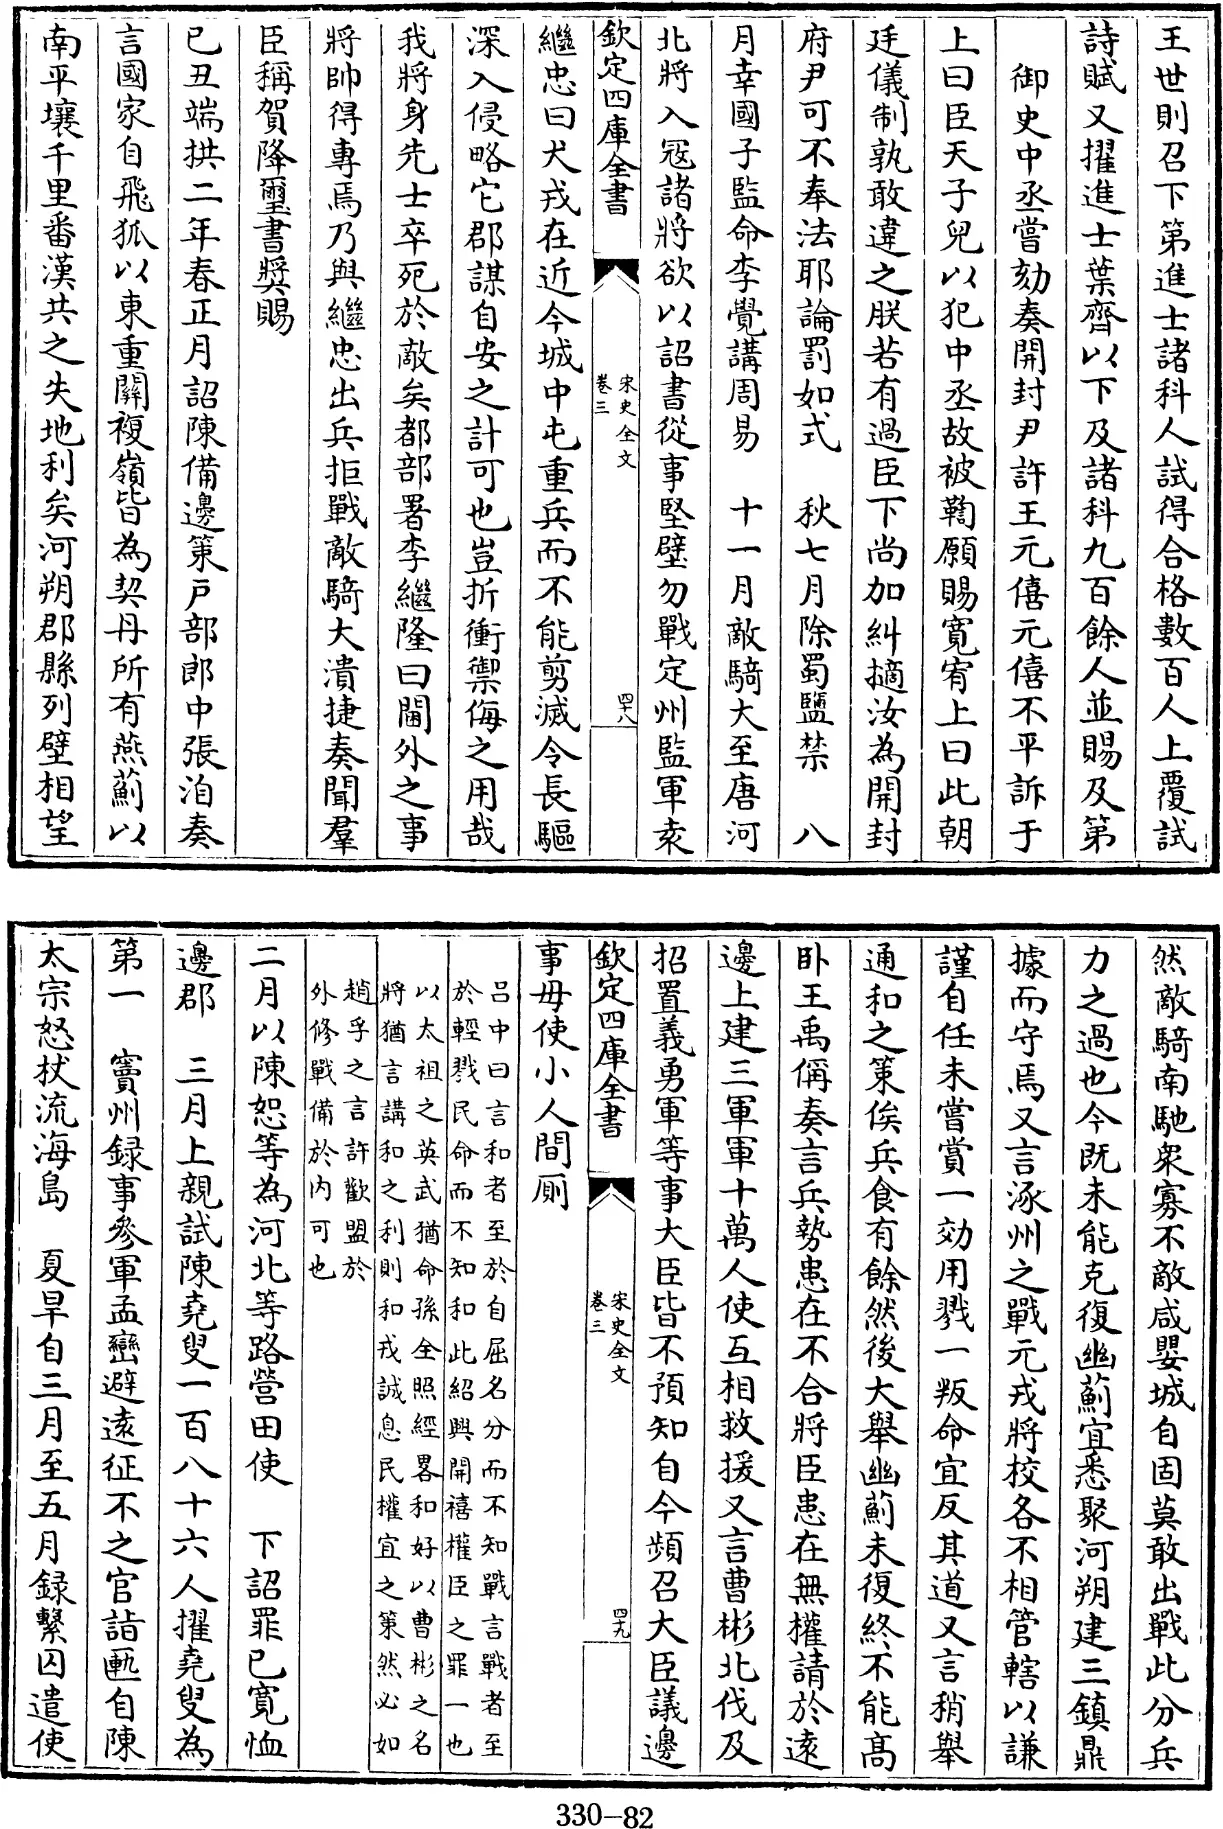 王世則召下第進士諸科人試得合格數百人上覆試
詩賦又擢進士葉齊以下及諸科九百餘人並賜及第
御史中丞嘗劾奏開封尹許王元僖元僖不平訴于
上曰臣天子兒以犯中丞故被鞫願賜寬宥上曰此朝
廷儀制孰敢違之朕若有過臣下尚加糾擿汝為開封
府尹可不奉法耶論罰如式 秋七月除蜀鹽禁 八
月幸國子監命李覺講周易 十一月敵騎大至唐河
北將入宼諸將欲以詔書從事堅壁勿戰定州監軍袁
欽定四庫全書 宋史全文 卷三 四十八
繼忠曰犬戎在近今城中屯重兵而不能剪滅令長驅
深入侵略它郡謀自安之計可也豈折衝禦侮之用哉
我將身先士卒死於敵矣都部署李繼隆曰閫外之事
將帥得專焉乃與繼忠出兵拒戰敵騎大潰捷奏聞羣
臣稱賀降璽書獎賜
已丑端拱二年春正月詔陳備邊策戶部郎中張洎奏
言國家自飛狐以東重關複嶺皆為契丹所有燕薊以
南平壤千里番漢共之失地利矣河朔郡縣列壁相望
然敵騎南馳衆寡不敵咸嬰城自固莫敢出戰此分兵
力之過也今既未能克復幽薊宜悉聚河朔建三鎮鼎
據而守焉又言涿州之戰元戎將校各不相管轄以謙
謹自任未嘗賞一効用戮一叛命宜反其道又言稍舉
通和之策俟兵食有餘然後大舉幽薊未復終不能高
卧王禹偁奏言兵勢患在不合將臣患在無權請於遠
邊上建三軍軍十萬人使互相救援又言曹彬北伐及
招置義勇軍等事大臣皆不預知自今頻召大臣議邊
欽定四庫全書 宋史全文 卷三 四十九
事毋使小人間厠
呂中曰言和者至於自屈名分而不知戰言戰者至
於輕戮民命而不知和此紹興開禧權臣之罪一也
以太祖之英武猶命孫全照經畧和好以曹彬之名
將猶言講和之利則和戎誠息民權宜之策然必如
趙孚之言許歡盟於
外修戰備於內可也
二月以陳恕等為河北等路營田使 下詔罪已寬恤
邊郡 三月上親試陳堯叟一百八十六人擢堯叟為
第一 竇州録事參軍孟巒避遠征不之官詣匭自陳
太宗怒杖流海島 夏旱自三月至五月録繫囚遣使
330-82